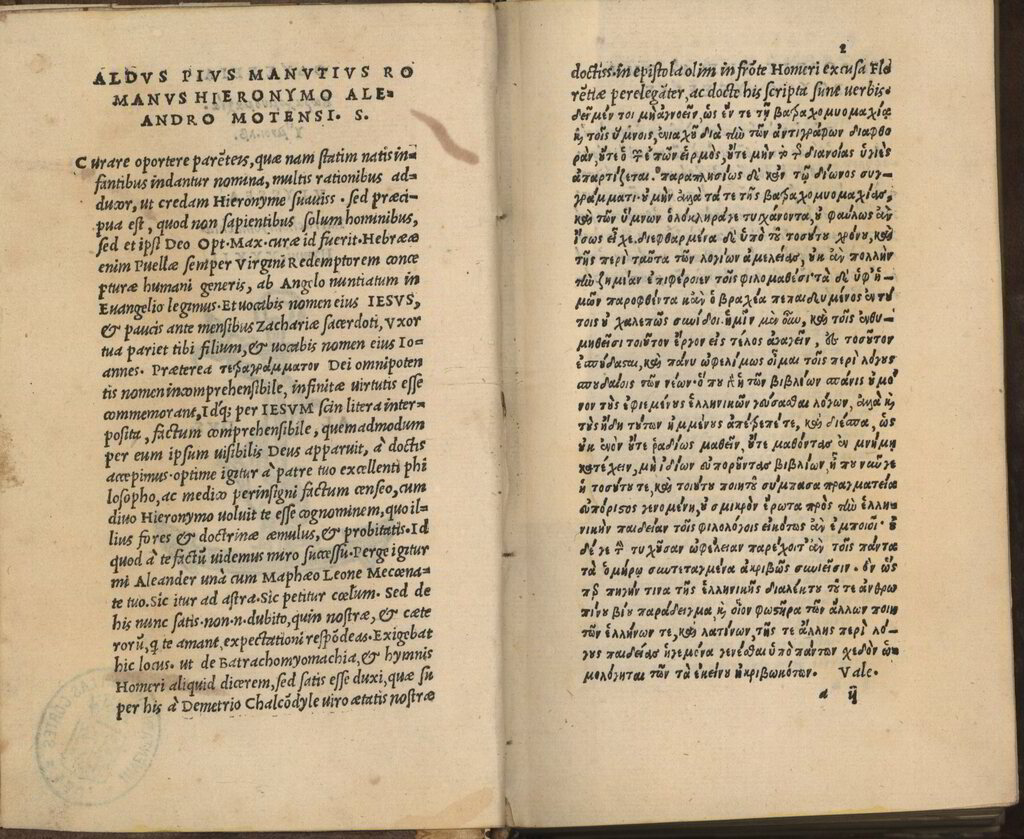 ALDVS PIVS MANVTIVS RO
MANVS HIERONYMO ALE-
ANDRO MOTENSI. S.
Curare oportere parẽteis, quæ nam statim natis in-
fantibus indantur nomina, multis rationibus ad-
ducor, ut credam Hieronyme suauiss. sed præci-
pua est, quod non sapientibus solum hominibus,
sed et ipsi Deo Opt. Max. curæ id fuerit. Hebrææ
enim Puellæ semper Virgini Redemptorem conce
pturæ humani generis, ab Angelo nuntiatum in
Euangelio legimus. Et uocabis nomen eius IESVS,
& paucis ante mensibus Zachariæ sacerdoti, Vxor
tua pariet tibi filium, & uocabis nomen eius Io-
annes. Præterea τετραγράμματον Dei omnipoten
tis nomen incomprehensibile, infinitæ uirtutis esse
commemorant, Idq; per IESVM scin litera inter-
posita, factum comprehensibile, quemadmodum
per eum ipsum uisibilis Deus apparuit, à doctis
accepimus. optime igitur à patre tuo excellenti phi
losopho, ac medico perinsigni factum censeo, cum
diuo Hieronymo uoluit te esse cognominem, quo il-
lius fores & doctrinæ æmulus, & probitatis. Id
quod à te factũ uidemus miro successu. Perge igitur
mi Aleander unà cum Maphæo Leone Mecœna-
te tuo. Sic itur ad astra. Sic petitur cœlum. Sed de
his nunc satis. non. n. dubito, quin nostræ, & cæte
rorũ, q te amant, expectationi respõdeas. Exigebat
hic locus. ut de Batrachomyomachia, & hymnis
Homeri aliquid dicerem, sed satis esse duxi, quæ su
per his à Demetrio Chalcõdyle uiro ætatis nostræ
2
doctiss. in epistola olim in frõte Homeri excusa Flo
rẽtiæ perelegãter, ac docte his scripta sunt uerbis.
δεῖ μέν τοι μὴ ἀγνοεῖν, ὡς ἔν τε τῇ βατραχομυομαχίᾳ
καὶ τοῖς ὕμνοις, ἐνιαχῇ διὰ τὴν τῶν ἀντιγράφων διαφθο
ρὰν, οὔτε ὁ τῶν ἐπῶν εἱρμὸς, οὔτε μὴν τὸ τῆς διανοίας ὑγιὲς
ἀπαρτίζεται. παραπλησίως δὲ καὶ τῷ δίωνος συγ-
γράμματι. οὐ μὴν ἀλλὰ τά τε τῆς βατραχομυομαχίας,
καὶ τῶν ὕμνων ὁλόκληρά γε τυγχάνοντα, οὐ φαύλως ἂν
ἴσως εἶχε. διεφθαρμένα δὲ ὑπὸ τοῦ τοσούτου χρόνου, καὶ
τῆς περὶ ταῦτα τῶν λογίων ἀμελείας, οὐκ ἂν πολλὴν
τὴν ζημίαν ἐπιφέροιεν τοῖς φιλομαθέσι. τὰ δὲ ὑφ' ἡ-
μῶν παροφθέντα κἂν ὁ βραχέα πεπαιδευμένος ἐν του
τοις οὐ χαλεπῶς συνίδοι. ἡμῖν μὲν οὖν, καὶ τοῖς ἐνθυ-
μηθεῖσι τοιοῦτον ἔργον εἰς τέλος ἀγαγεῖν, ἐς τοσοῦτον
ἐσπούδασται, καὶ πάνυ ὠφελίμως οἶμαι τοῖς περὶ λόγους
σπουδαίοις τῶν νέων. ὅπου γὰρ ἡ τῶν βιβλίων σπάνις οὐ μό
νον τοὺς ἐφιεμένους ἑλληνικῶν γεύσασθαι λόγων, ἀλλὰ καὶ
τοὺς ἤδη τούτων ἡμμένους ἀπέτρεπέ τε, καὶ διέσπα, ὡς
οὐκ ἐνὸν οὔτε ῥᾳδίως μαθεῖν, οὔτε μαθόντας ἐν μνήμῃ
κατέχειν, μὴ ἰδίων εὐποροῦντας βιβλίων, ἦ που νῦν γε
ἡ τοσούτου τε, καὶ τοιούτου ποιητοῦ σύμπασα πραγματεία
εὐπόριστος γενομένη, οὐ σμικρὸν ἔρωτα πρὸς τὴν ἑλλη-
νικὴν παιδείαν τοῖς φιλολόγοις εἰκότως ἂν ἐμποιοῖ. οὐ
δέ γε τὴν τυχοῦσαν ὠφέλειαν παρέχοιτ' ἂν τοῖς πάντα
τὰ ὁμήρῳ συντεταγμένα ἀκριβῶς συνιεῖσιν. ὃν ὡς
περ πηγήν τινα τῆς ἑλληνικῆς διαλέκτου τοῦ τε ἀνθρω
πίνου βίου παράδειγμα, καὶ οἷον φωστῆρα τῶν ἄλλων ποιη
τῶν ἑλλήνων τε, καὶ λατίνων, τῆς τε ἄλλης περὶ λό-
γους παιδείας ἡγεμόνα γενέσθαι ὑπὸ πάντων σχεδὸν ὡ-
μολόγηται τῶν τὰ ἐκείνου ἠκριβωκότων. Vale.
a ij